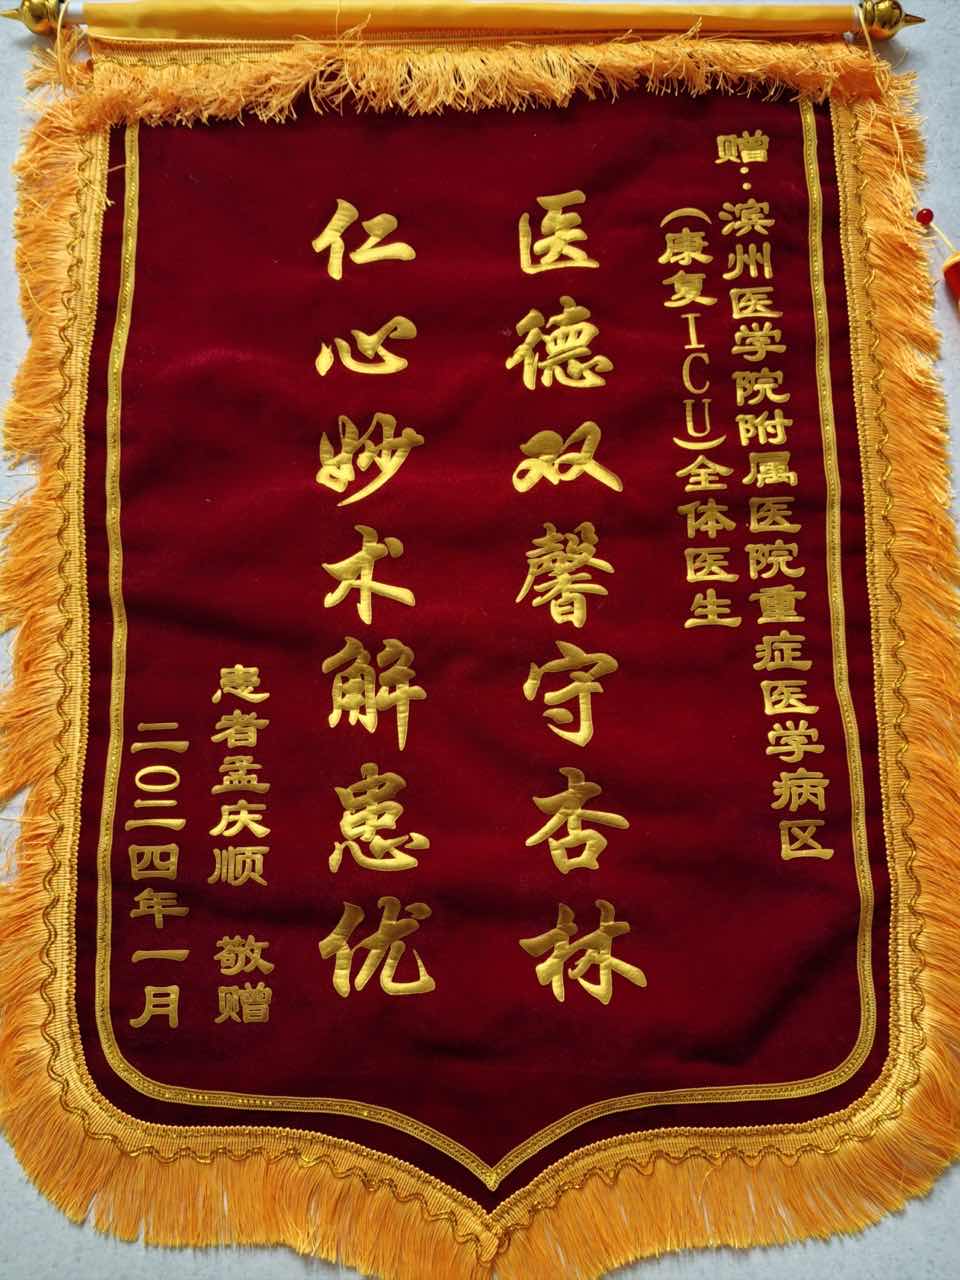 赠：滨州医学院附属医院重症医学病区
（康复ICU）全体医生
医德双馨守杏林
仁心妙术解患优
患者孟庆顺 敬赠
二〇二四年一月